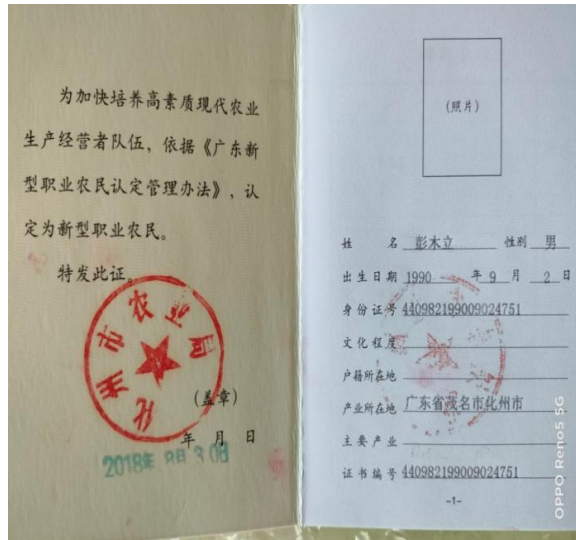 为加快培养高素质现代农业
生产经营者队伍，依据《广东新
型职业农民认定管理办法》，认
定为新型职业农民。
特发此证。
化州市农业局
（盖章）
年 月 日
2018年 8月 30日
（照片）
姓 名 彭木立 性别 男
出生日期 1990 年 9 月 2 日
身份证号 440982199009024751
文化程度
户籍所在地
产业所在地 广东省茂名市化州市
主要产业
证书编号 440982199009024751
-1-
OPPO Reno5 5G